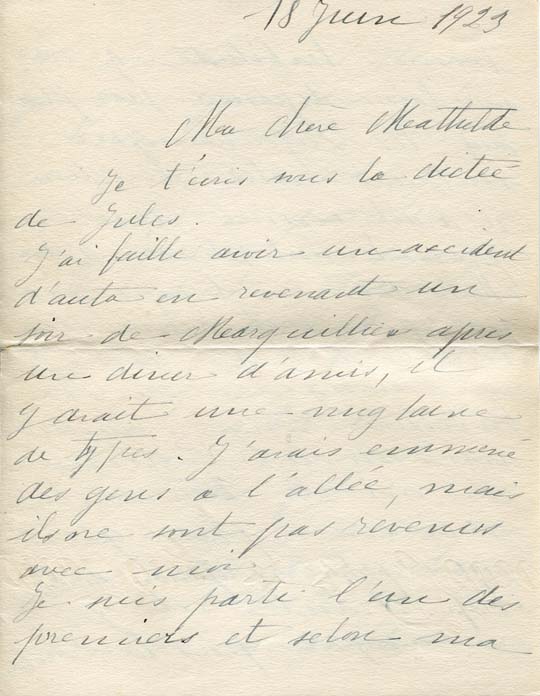 18 Juin 1923
Ma chère Mathilde
Je t'écris sous la dictée
de Jules.
J'ai failli avoir un accident
d'auto en revenant un
soir de Marquillies après
un diner d'amis, il
y avait une vingtaine
de types. J'avais emmené
des gens a l'allée, mais
ils ne sont pas revenus
avec moi
Je suis parti l'un des
premiers et selon ma